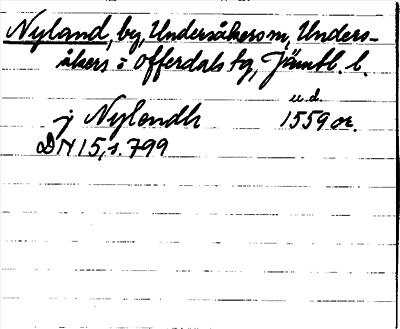 Nyland, by, Undersåkers sn, Unders-
åkers o Offerdals tg, Jämtl. l.
u.d.
j Nylondh 1559 or.
DN 15, s. 799